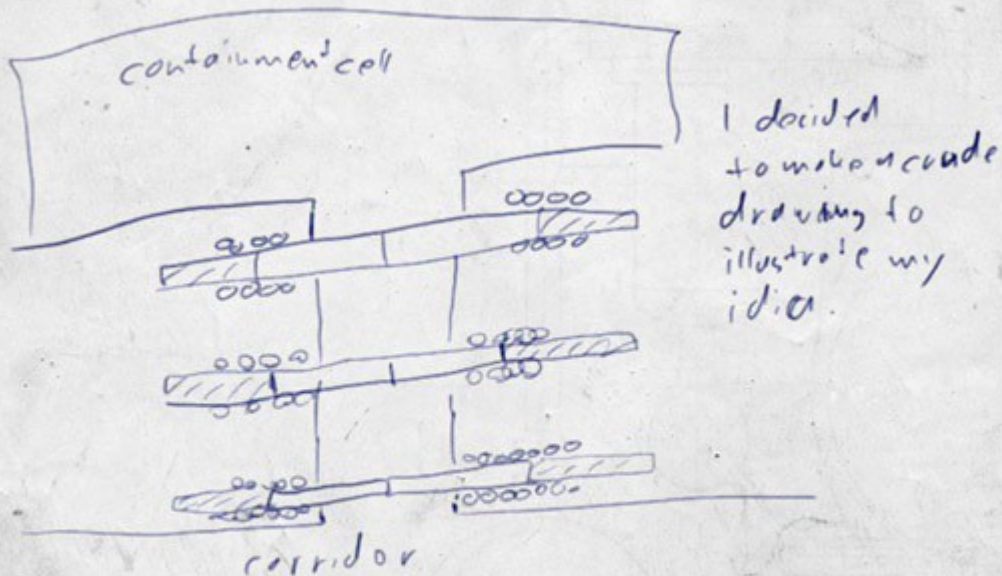 containment cell
I decided
to make a crude
drawing to
illustrate my
idia.
corridor